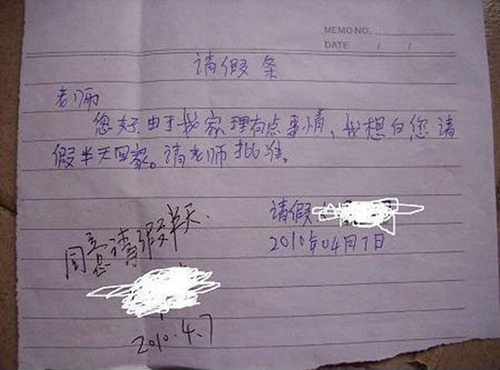 MEMO NO.
DATE / /
请假条
老师
您好.由于我家理有点事情、我想白您请
假半天回家。请老师批准。
请假
2010年04月7日
同意请假半天.
2010.4.7